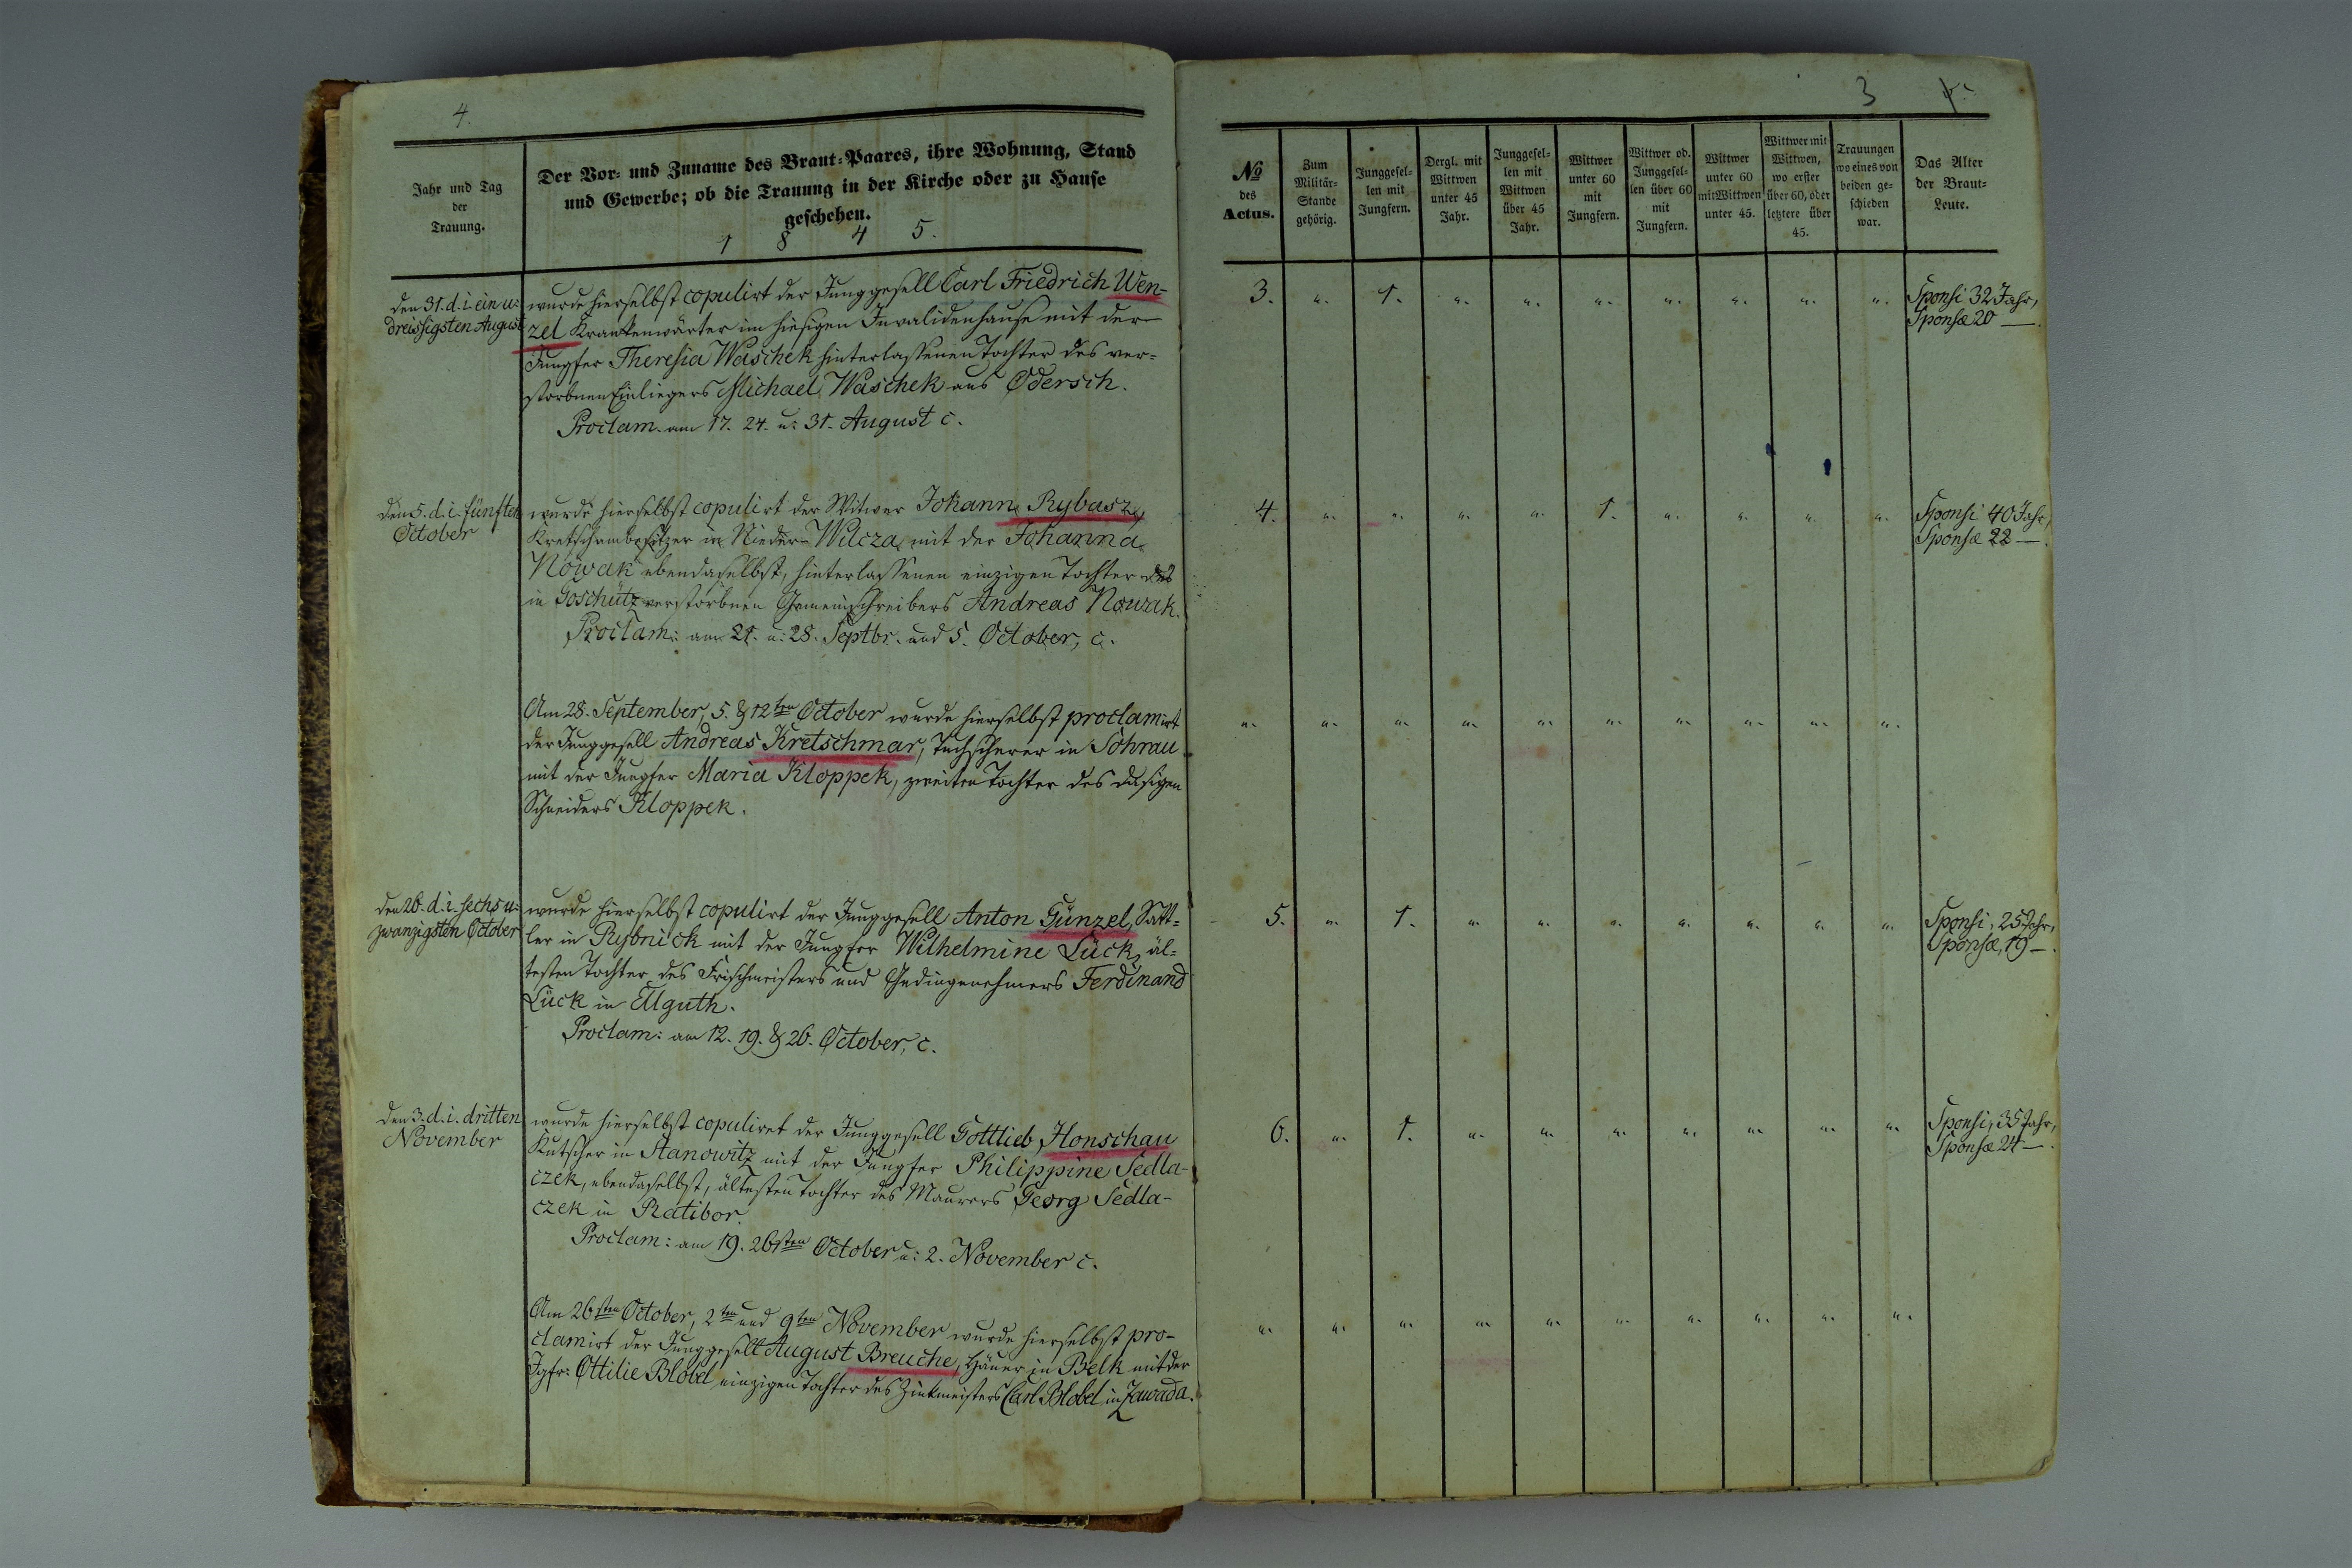 4.
Jahr und Tag
der
Trauung.
Der Vor- und Zuname des Braut-Paares, ihre Wohnung, Stand
und Gewerbe; ob die Trauung in der Kirche oder zu Hause
geschehen.
1 8 4 5.
den 31. d. i. ein u:
dreissigsten August
wurde hierselbst copulirt der Junggesell Carl Friedrich Wen-
zel Krankenwärter im hiesigen Invalidenhause mit der
Jungfer Theresia Waschek hinterlassenen Tochter des ver-
storbnen Einliegers Michael Waschek aus Odersch.
Proclam. am 17. 24. u: 31. August c.
den 5. d. i. fünften
October
wurde hierselbst copulirt der Witwer Johann Rybasz,
Kretschambesitzer in Nieder-Wilcza, mit der Johanna
Nowak ebendaselbst, hinterlassenen einzigen Tochter des
in Goschütz verstorbnen Gemeinschreibers Andreas Nowak.
Proclam: am 21. u: 28. Septbr. und 5. October, c.
Am 28. September, 5. & 12ten October wurde hierselbst proclamirt
der Junggesell Andreas Kretschmar, Tuchscherer in Sohrau
mit der Jungfer Maria Kloppek, zweiten Tochter des dasigen
Schneiders Kloppek.
den 26. d. i. sechs u:
zwanzigsten October
wurde hierselbst copulirt der Junggesell Anton Günzel, Satt-
ler in Rybnick mit der Jungfer Wilhelmine Lück, äl-
testen Tochter des Frischmeisters und Gedingenehmers Ferdinand
Lück in Ellguth.
Proclam: am 12. 19. & 26. October, c.
den 3. d. i. dritten
November
wurde hierselbst copuliret der Junggesell Gottlieb Honschau
Kutscher in Stanowitz mit der Jungfer Philippine Sedla-
czek, ebendaselbst, ältesten Tochter des Maurers Georg Sedla-
czek in Ratibor.
Proclam: am 19. 26sten October u: 2. November c.
Am 26sten October, 2ten und 9ten November wurde hierselbst pro-
clamirt der Junggesell August Breuche, Häuer in Belk mit der
Jgfr: Ottilie Blobel einzigen Tochter des Zinkmeisters Carl Blobel in Zawada.
3 4.
№
des
Actus.
Zum
Militär-
Stande
gehörig.
Junggesel-
len mit
Jungfern.
Dergl. mit
Wittwen
unter 45
Jahr.
Junggesel-
len mit
Wittwen
über 45
Jahr.
Wittwer
unter 60
mit
Jungfern.
Wittwer od.
Junggesel-
len über 60
mit
Jungfern.
Wittwer
unter 60
mit Wittwen
unter 45.
Wittwer mit
Wittwen,
wo erster
über 60, oder
letztere über
45.
Trauungen
wo eines von
beiden ge-
schieden
war.
Das Alter
der Braut-
Leute.
3. ". 1. ". ". ". ". ". ". ". Sponsi 32 Jahr,
Sponsæ 20 —.
4. ". ". ". ". 1. ". ". ". ". Sponsi 40 Jahr,
Sponsæ 22 —.
". ". ". ". ". ". ". ". ". ".
5. ". 1. ". ". ". ". ". ". ". Sponsi, 25 Jahr,
Sponsæ, 19 —.
6. ". 1. ". ". ". ". ". ". ". Sponsi, 35 Jahr,
Sponsæ 24 —.
". ". ". ". ". ". ". ". ". ".